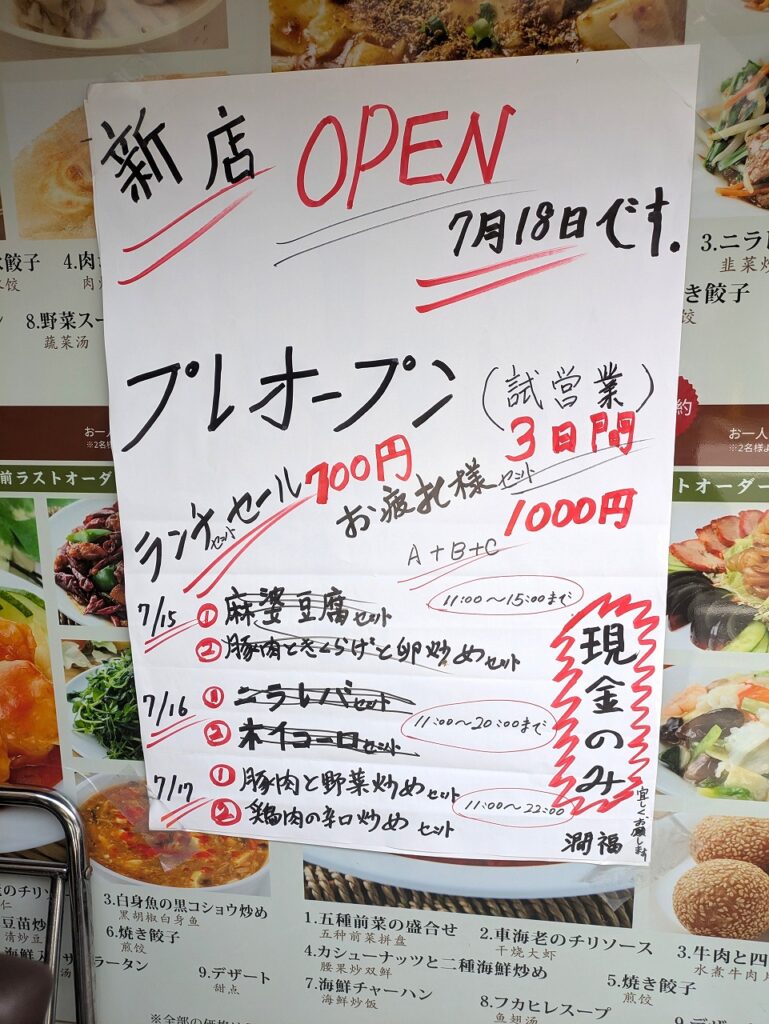 新店 OPEN
7月18日です.
プレオープン (試営業)
3日間
ランチセットセール 700円
お疲れ様セット
1000円
A+B+C
7/15 ① 麻婆豆腐セット
11:00~15:00まで
② 豚肉ときくらげと卵炒めセット
7/16 ① ニラレバセット
② ホイコーロセット
11:00~20:00まで
7/17 ① 豚肉と野菜炒めセット
② 鶏肉の辛口炒めセット
11:00~22:00
現金のみ
宜しくお願します
潤福
水餃子
4.肉
8.野菜スー
蔬菜汤
3.ニラ
韭菜炒
き餃子
饺
約
お一人
※2名様
お一人
※2名様よ
前ラストオーダ
ストオーダー
3.白身魚の黒コショウ炒め
黑胡椒白身鱼
6.焼き餃子
煎饺
9.デザート
甜点
1.五種前菜の盛合せ
五种前菜拼盘
2.車海老のチリソース
干烧大虾
3.牛肉と四
水煮牛肉
4.カシューナッツと二種海鮮炒め
腰果炒双鲜
5.焼き餃子
煎饺
7.海鮮チャーハン
海鲜炒饭
8.フカヒレスープ
鱼翅汤
のチリソ
仁
豆苗炒
清炒豆
海鮮入
ラータン
汤
※全部の価格は